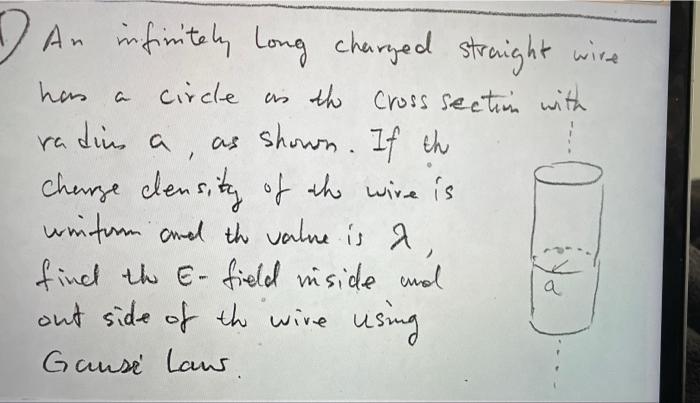 1) An infinitely long charged straight wire
has a circle as the cross section with
radius a, as shown. If the
charge density of the wire is
uniform and the value is λ,
find the E-field inside and
out side of the wire using
Gauss' Law.
a